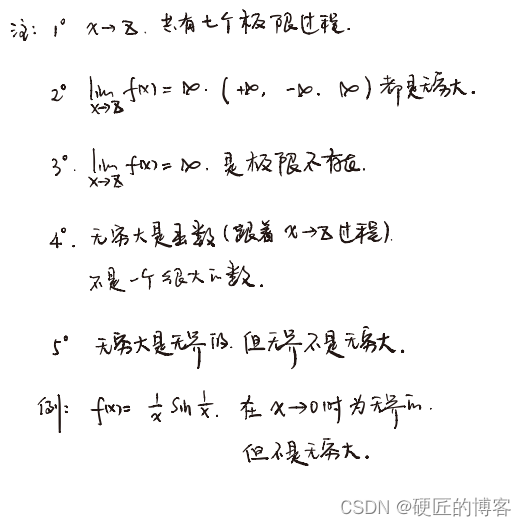 注: 1° x→Z. 共有七个极限过程.
2° lim x→Z f(x) = ∞. (+∞, -∞, ∞) 都是无穷大.
3°. lim x→Z f(x) = ∞. 是极限不存在.
4°. 无穷大是函数(跟着 x→Z 过程).
不是一个很大的数.
5° 无穷大是无界的. 但无界不是无穷大.
例: f(x) = 1/x sin 1/x. 在 x→0时为无界的.
但不是无穷大.
CSDN @硬匠的博客